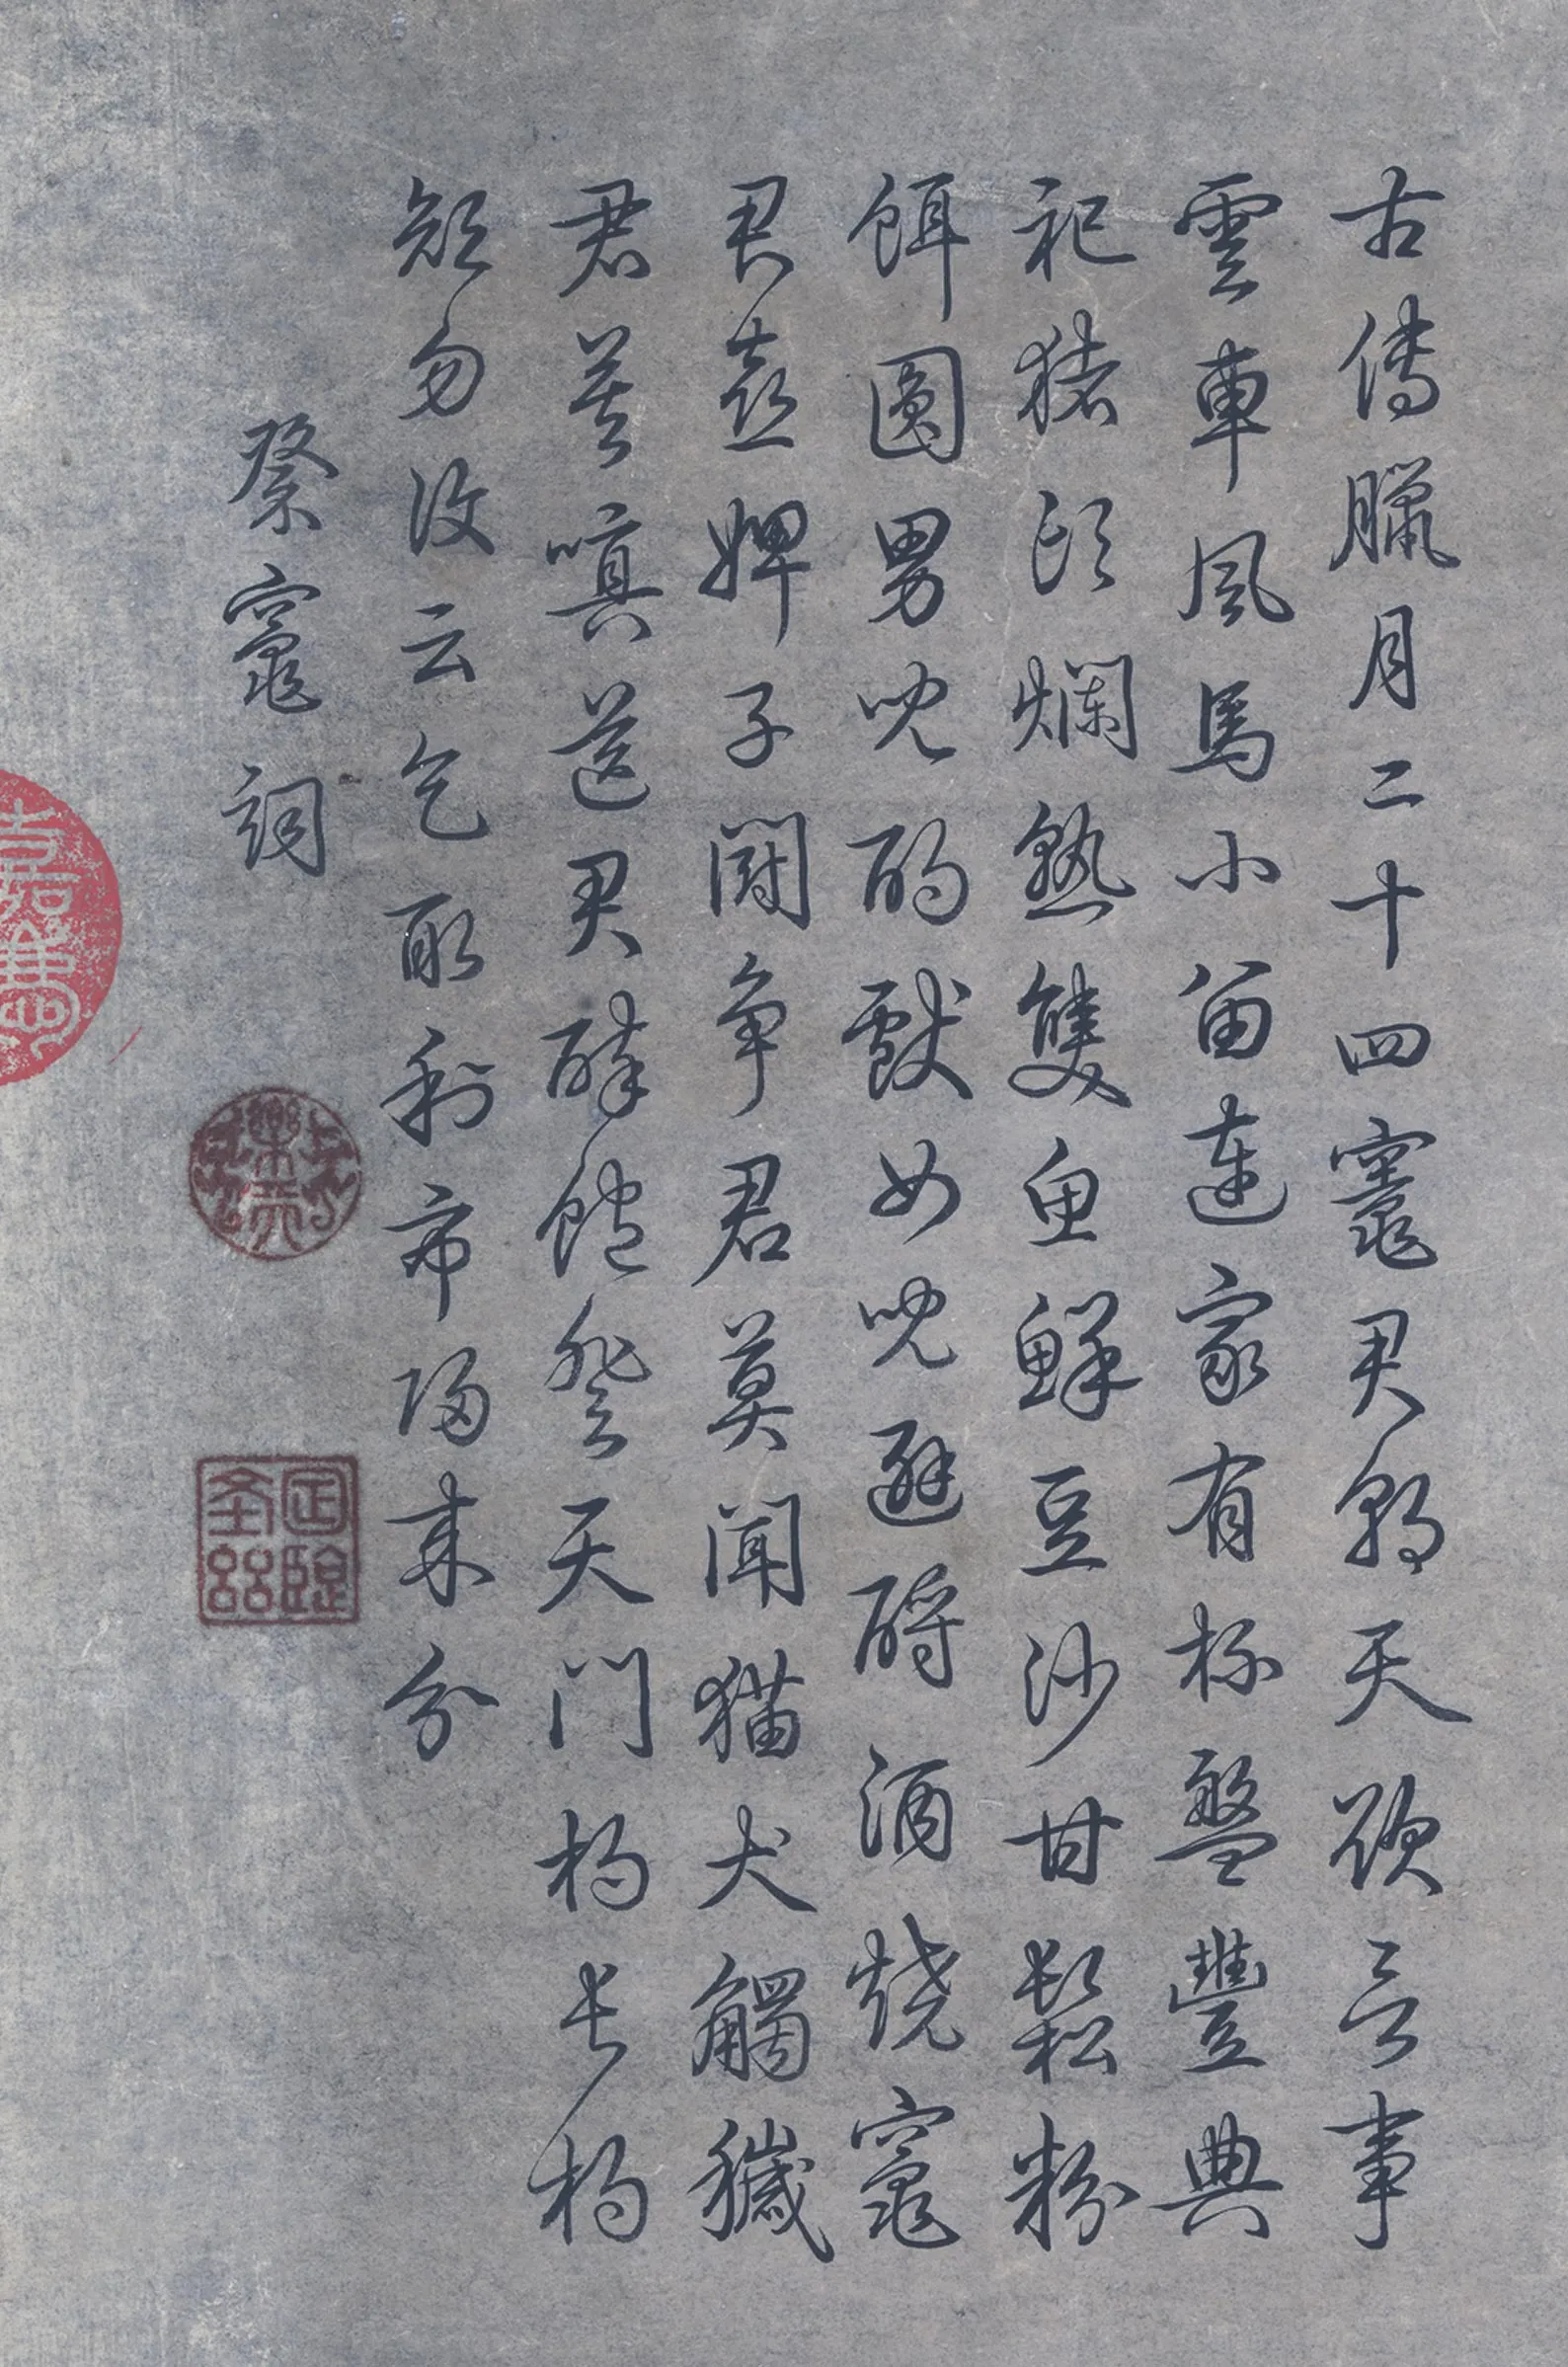 古傳臘月二十四竈君朝天欲言事
雲車風馬小留連家有杯盤豐典
祀猪頭爛熟雙魚鮮豆沙甘鬆粉
餌圓男兒酌獻女兒避酹酒燒竈
君喜婢子鬪争君莫聞猫犬觸穢
君莫嗔送君醉飽登天門杓長杓
短勿復云乞取利市歸來分
祭竈詞
樂天